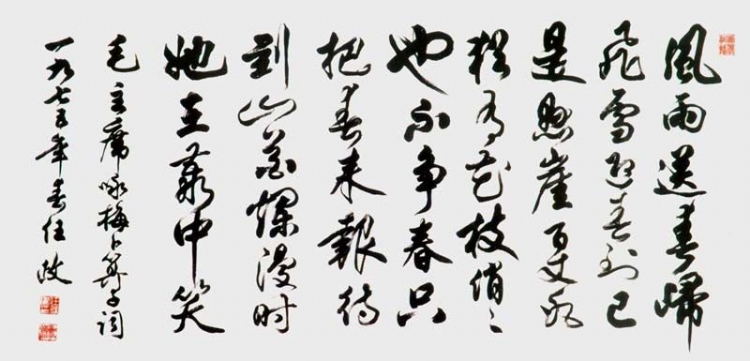 風雨送春歸
飛雪迎春到已
是懸崖百丈冰
猶有花枝俏〻
也不争春只
把春来報待
到山花爛漫时
她在叢中笑
毛主席咏梅卜算子词
一九七五年春任政